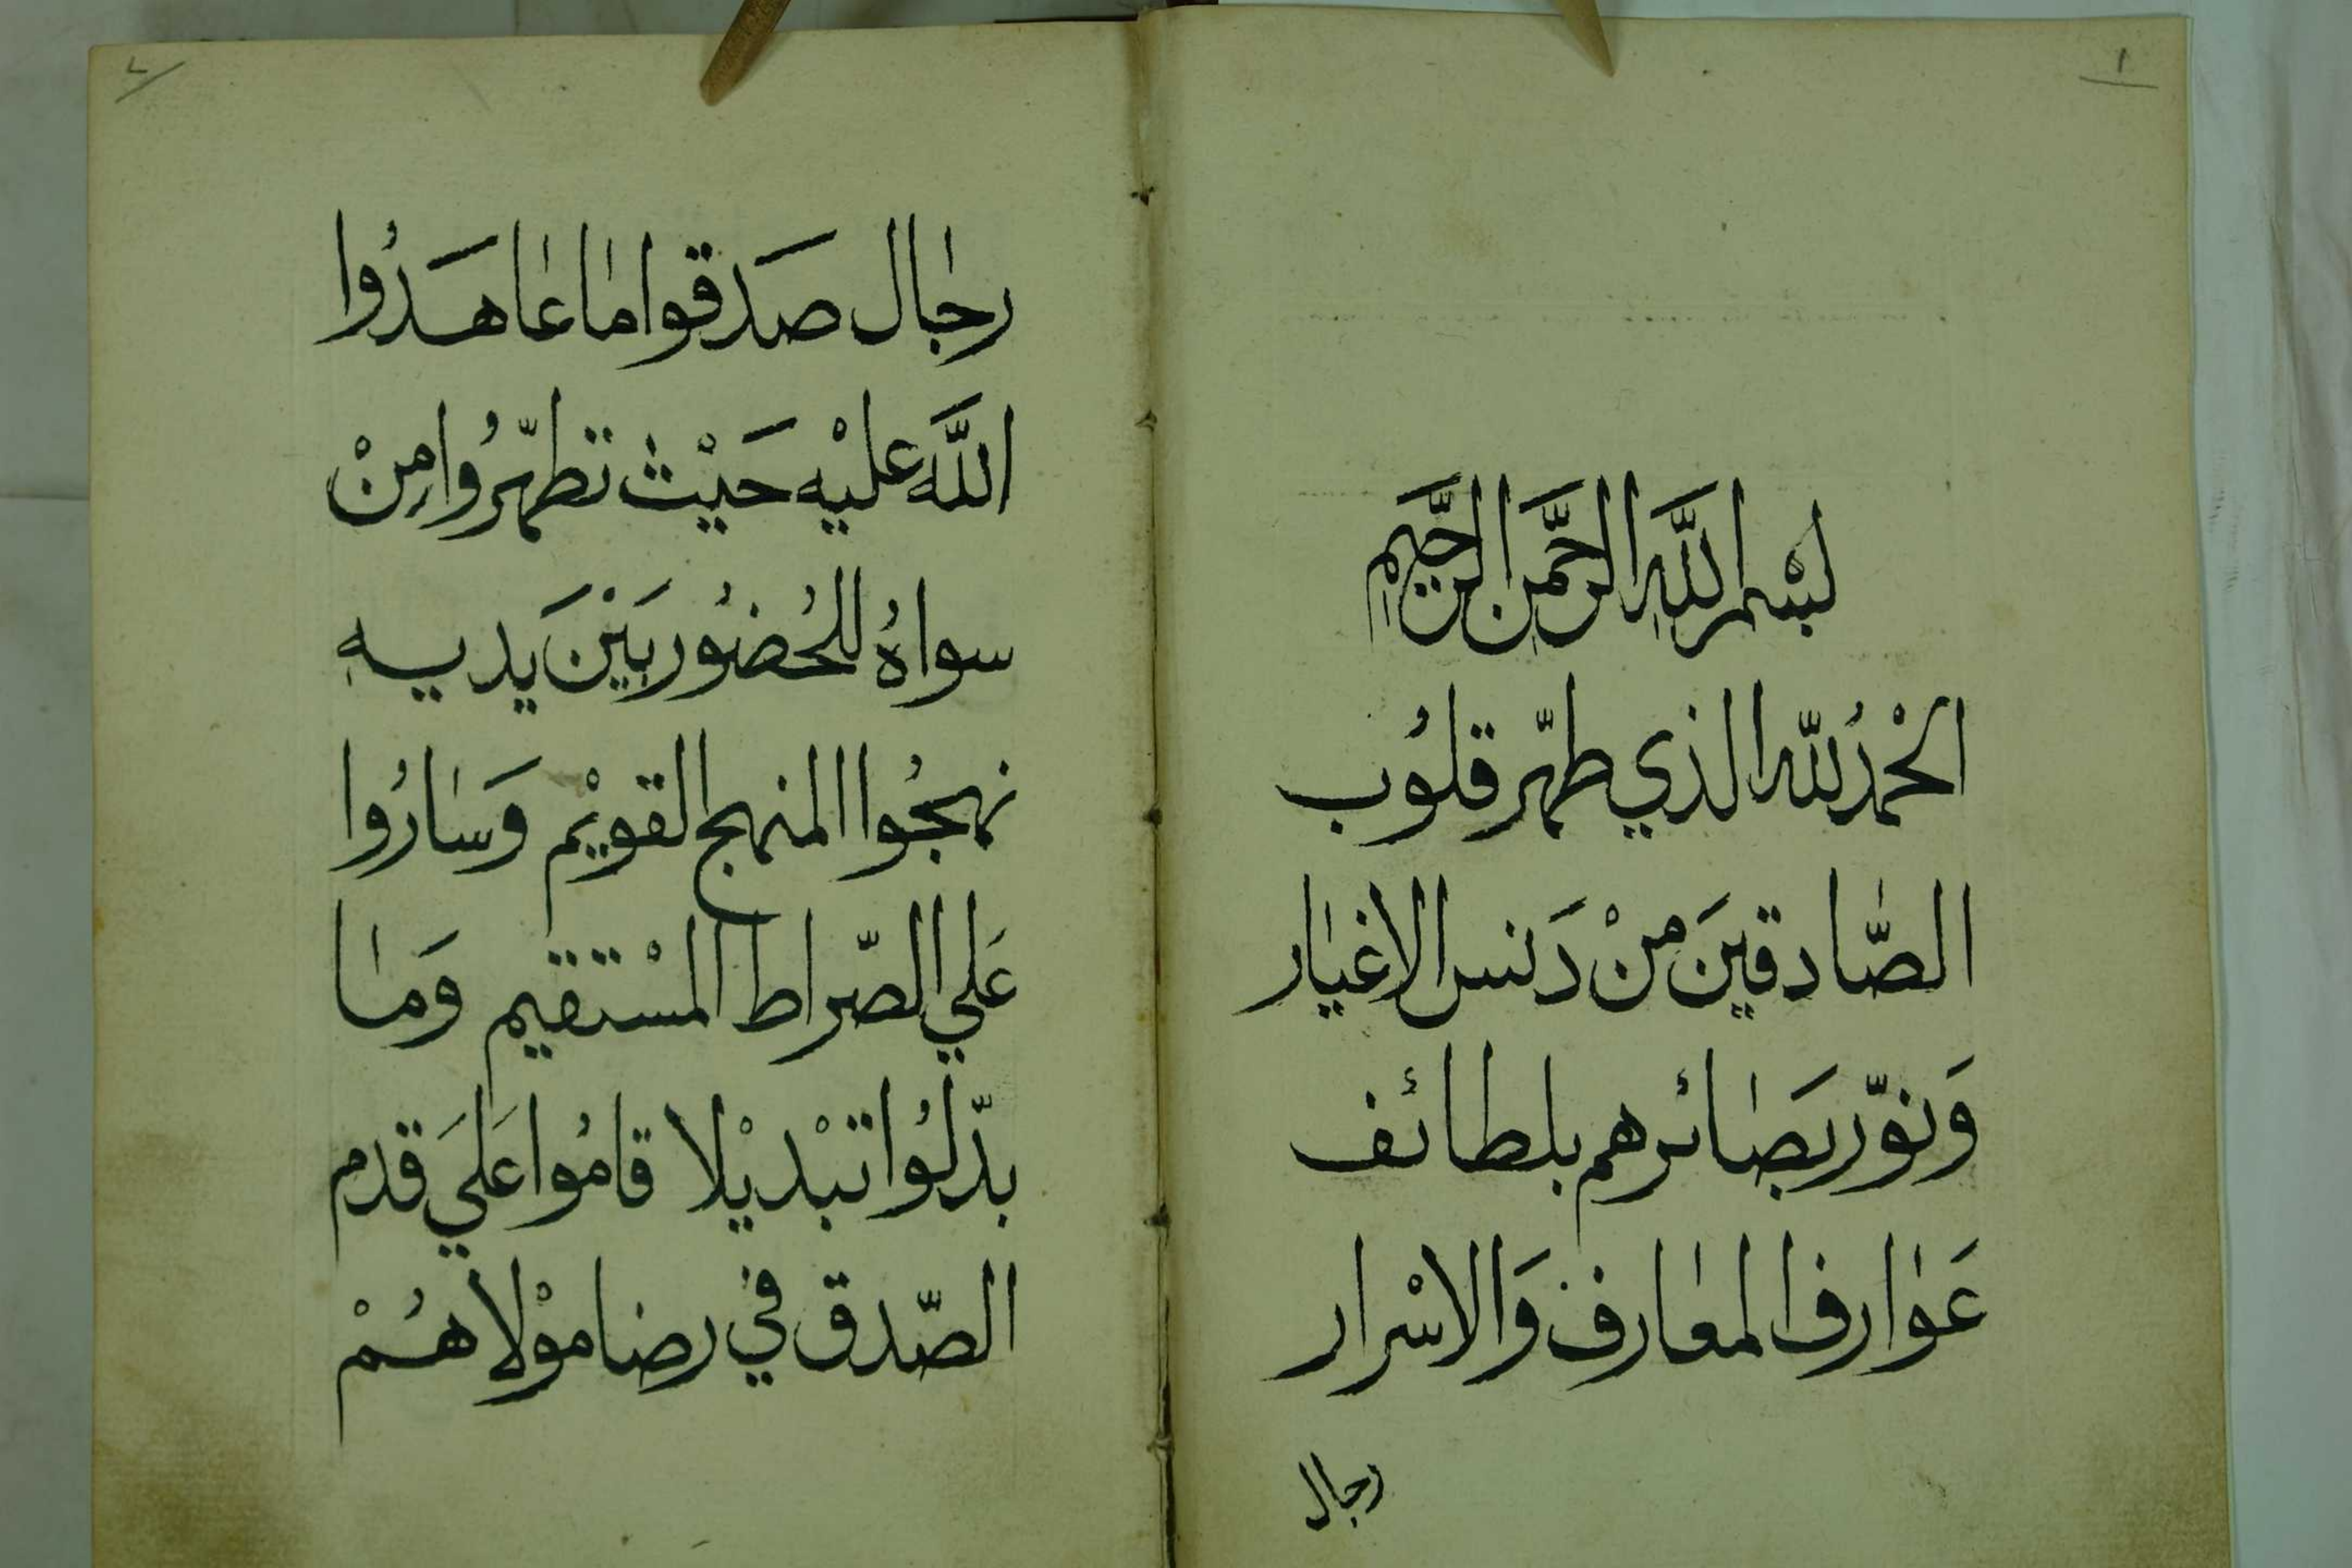 ١
بسْمِ اللَّهِ الرَّحْمَنِ الرَّحِيمِ
الحْمدُ للّه الذي طهّر قلُوب
الصّادقينَ منْ دَنس الاغيار
وَنوّر بصَائرهم بلطائف
عَوارف المعارف وَالاسْرار
رجال
٢
رجال صَدقوا ما عاهَدُوا
اللَّه عليْه حَيْث تطهّرُوا مِنْ
سواهُ للحُضُور بَيْنَ يديهِ
نهجُوا المنهج القويْم وَسارُوا
عَلي الصّراط المسْتقيم وَما
بدّلُوا تبْديْلا قامُوا عَليَ قدم
الصّدق في رضا موْلاهُمْ